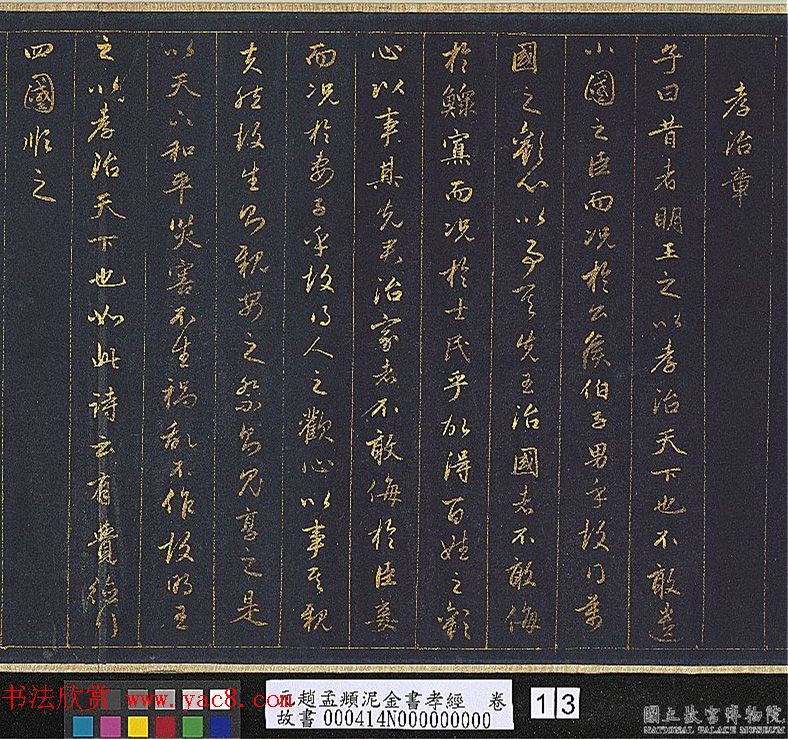 孝治章
子曰昔者明王之以孝治天下也不敢遺
小國之臣而況於公侯伯子男乎故得萬
國之歡心以事其先王治國者不敢侮
於鰥寡而況於士民乎故得百姓之歡
心以事其先君治家者不敢侮於臣妾
而況於妻子乎故得人之歡心以事其親
夫然故生則親安之祭則鬼享之是
以天下和平災害不生禍亂不作故明王
之以孝治天下也如此詩云有覺德行
四國順之
书法欣赏 www.yac8.com
元趙孟頫泥金書孝經 卷
故書 000414N000000000
13
國立故宮博物院
NATIONAL PALACE MUSEUM